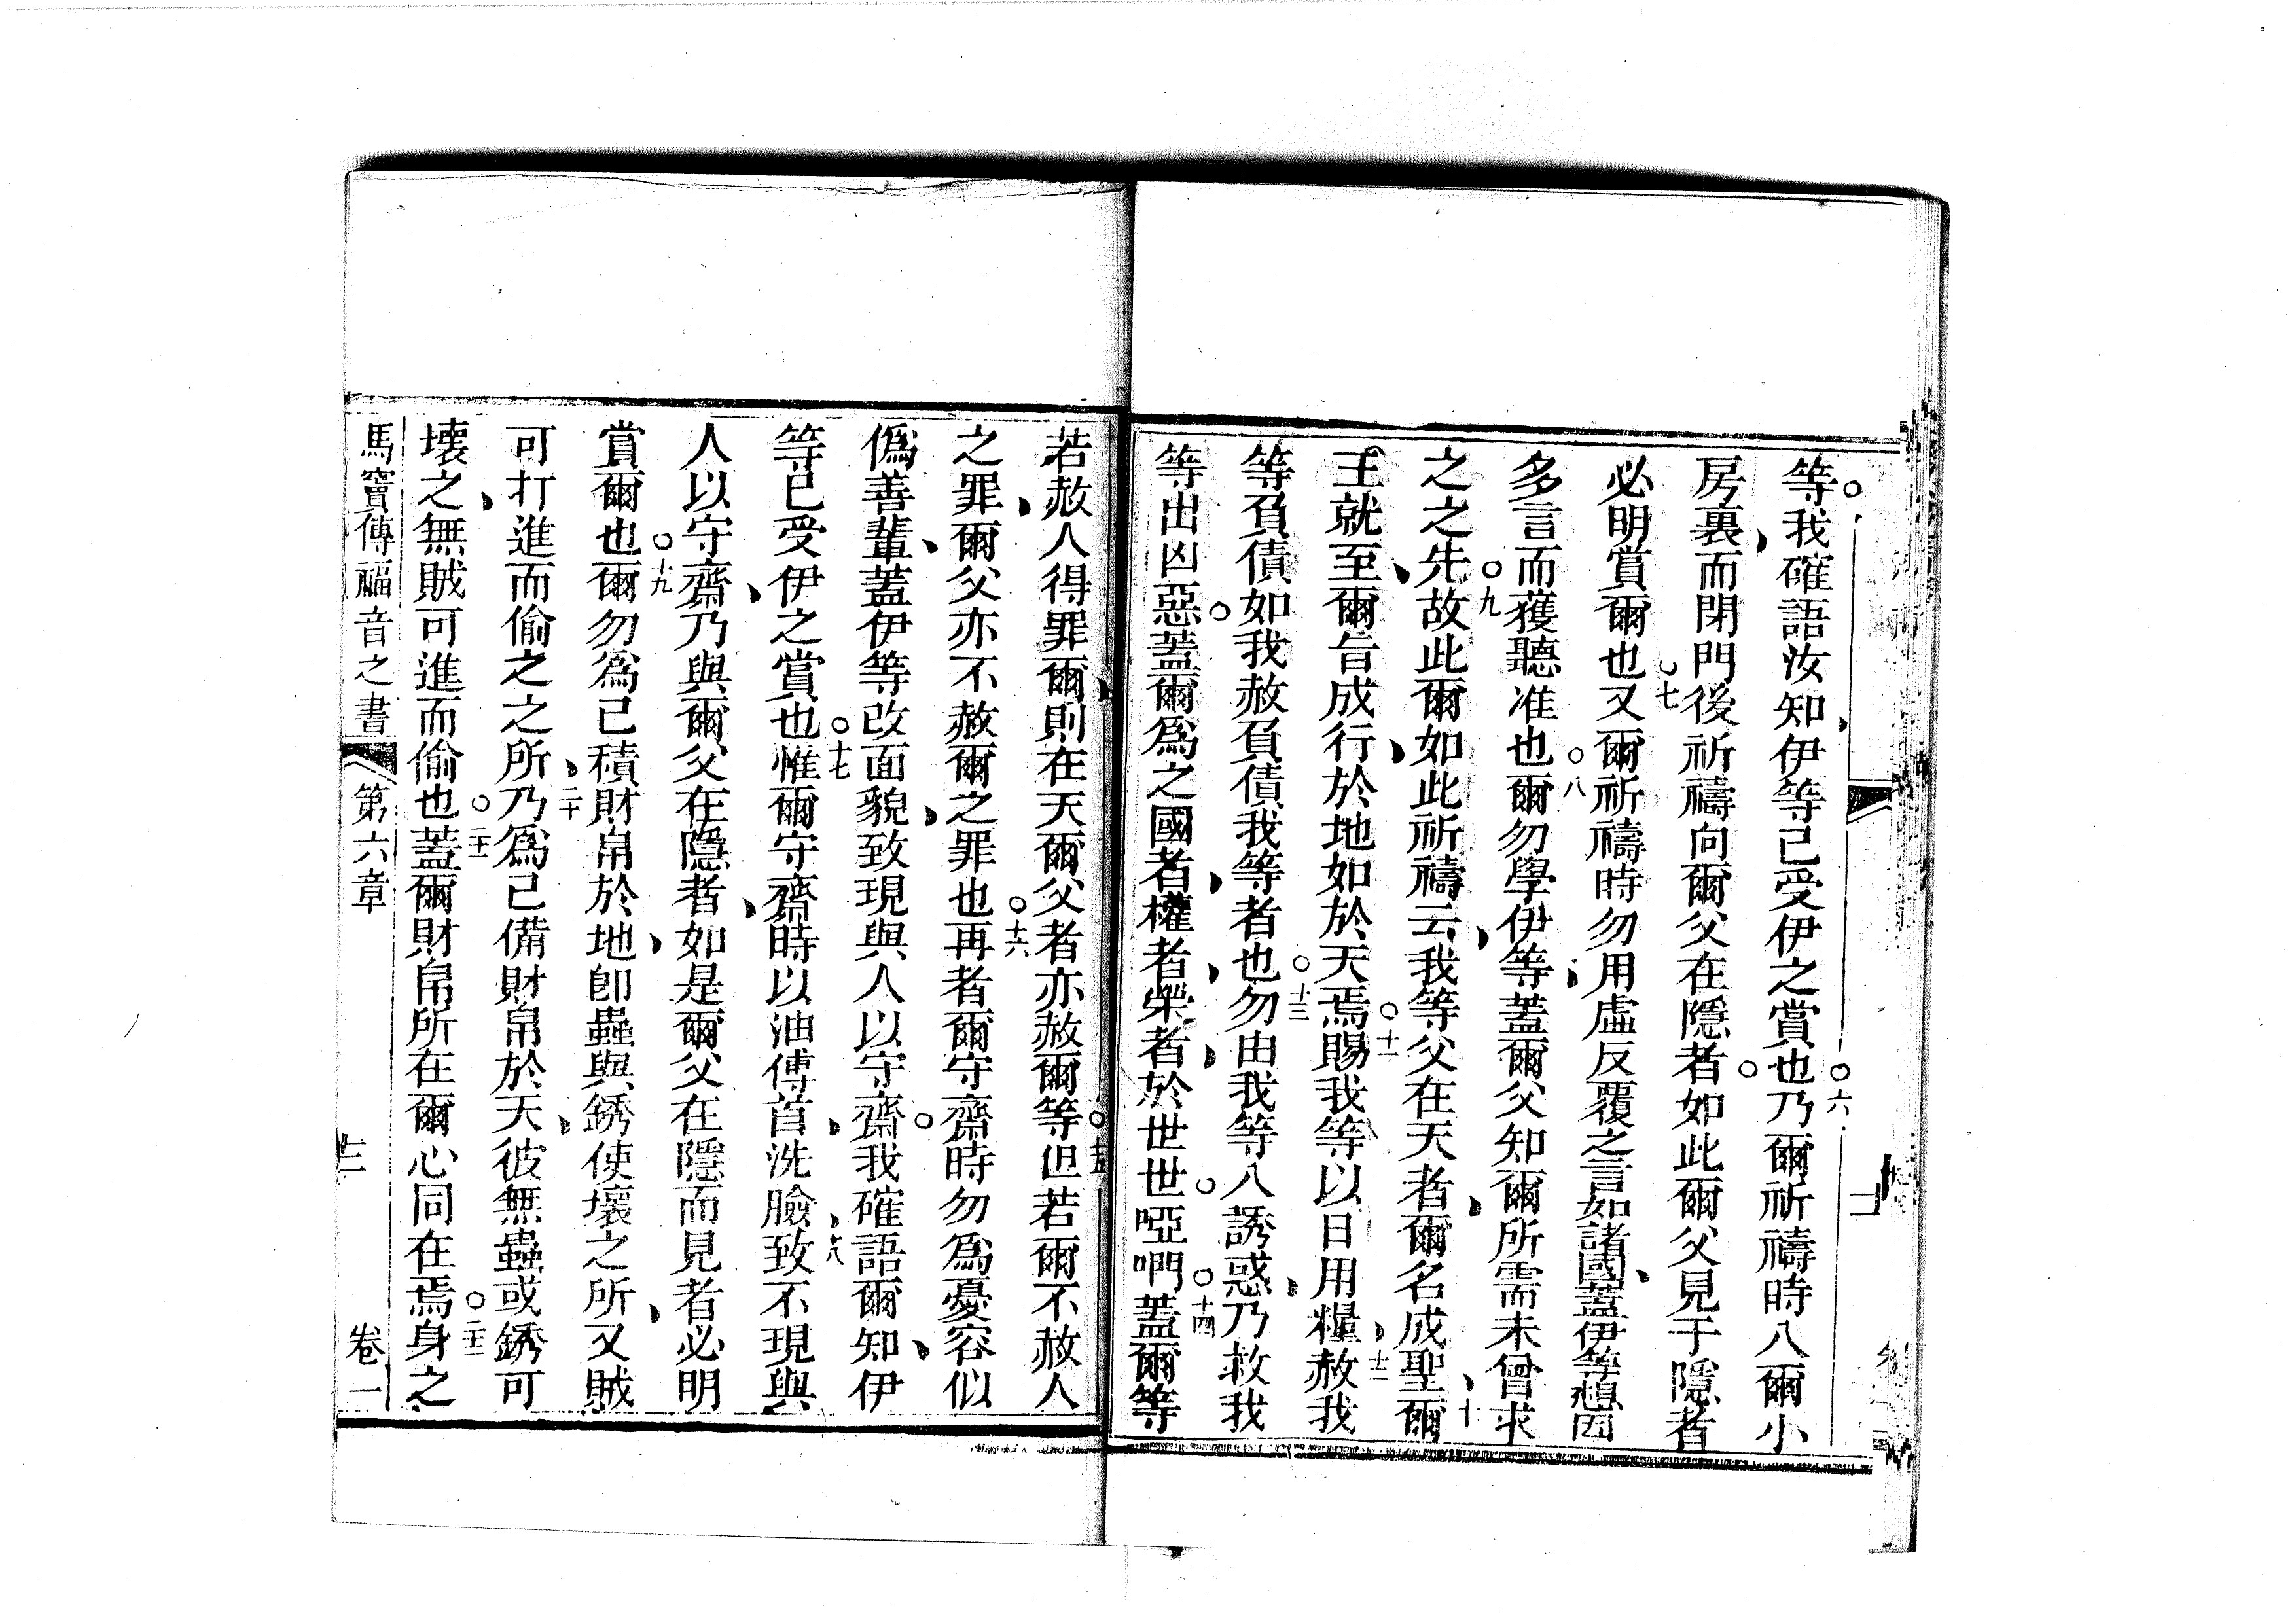 等我確語汝知伊等已受伊之賞也○六乃爾祈禱時入爾小
房裏而閉門後祈禱向爾父在隱者如此爾父見于隱者
必明賞爾也○七又爾祈禱時勿用虛反覆之言如諸國蓋伊等想因
多言而獲聽准也○八爾勿學伊等蓋爾父知爾所需未曾求
之之先○九故此爾如此祈禱云我等父在天者爾名成聖十爾
王就至爾旨成行於地如於天焉○十一賜我等以日用糧十二赦我
等負債如我赦負債我等者也○十三勿由我等入誘惑乃救我
等出凶惡蓋爾為之國者權者榮者於世世啞啊○十四蓋爾等
若赦人得罪爾則在天爾父者亦赦爾等○十五但若爾不赦人
之罪爾父亦不赦爾之罪也○十六再者爾守齋時勿為憂容似
僞善輩蓋伊等改面貌致現與人以守齋我確語爾知伊
等已受伊之賞也○十七惟爾守齋時以油傅首洗臉十八致不現與
人以守齋乃與爾父在隱者如是爾父在隱而見者必明
賞爾也○十九爾勿為己積財帛於地卽蟲與銹使壞之所又賊
可打進而偷之之所二十乃為己備財帛於天彼無蟲或銹可
壞之無賊可進而偷也○二十一蓋爾財帛所在爾心同在焉○二十二身之
馬竇傳福音之書 第六章 十二 卷一